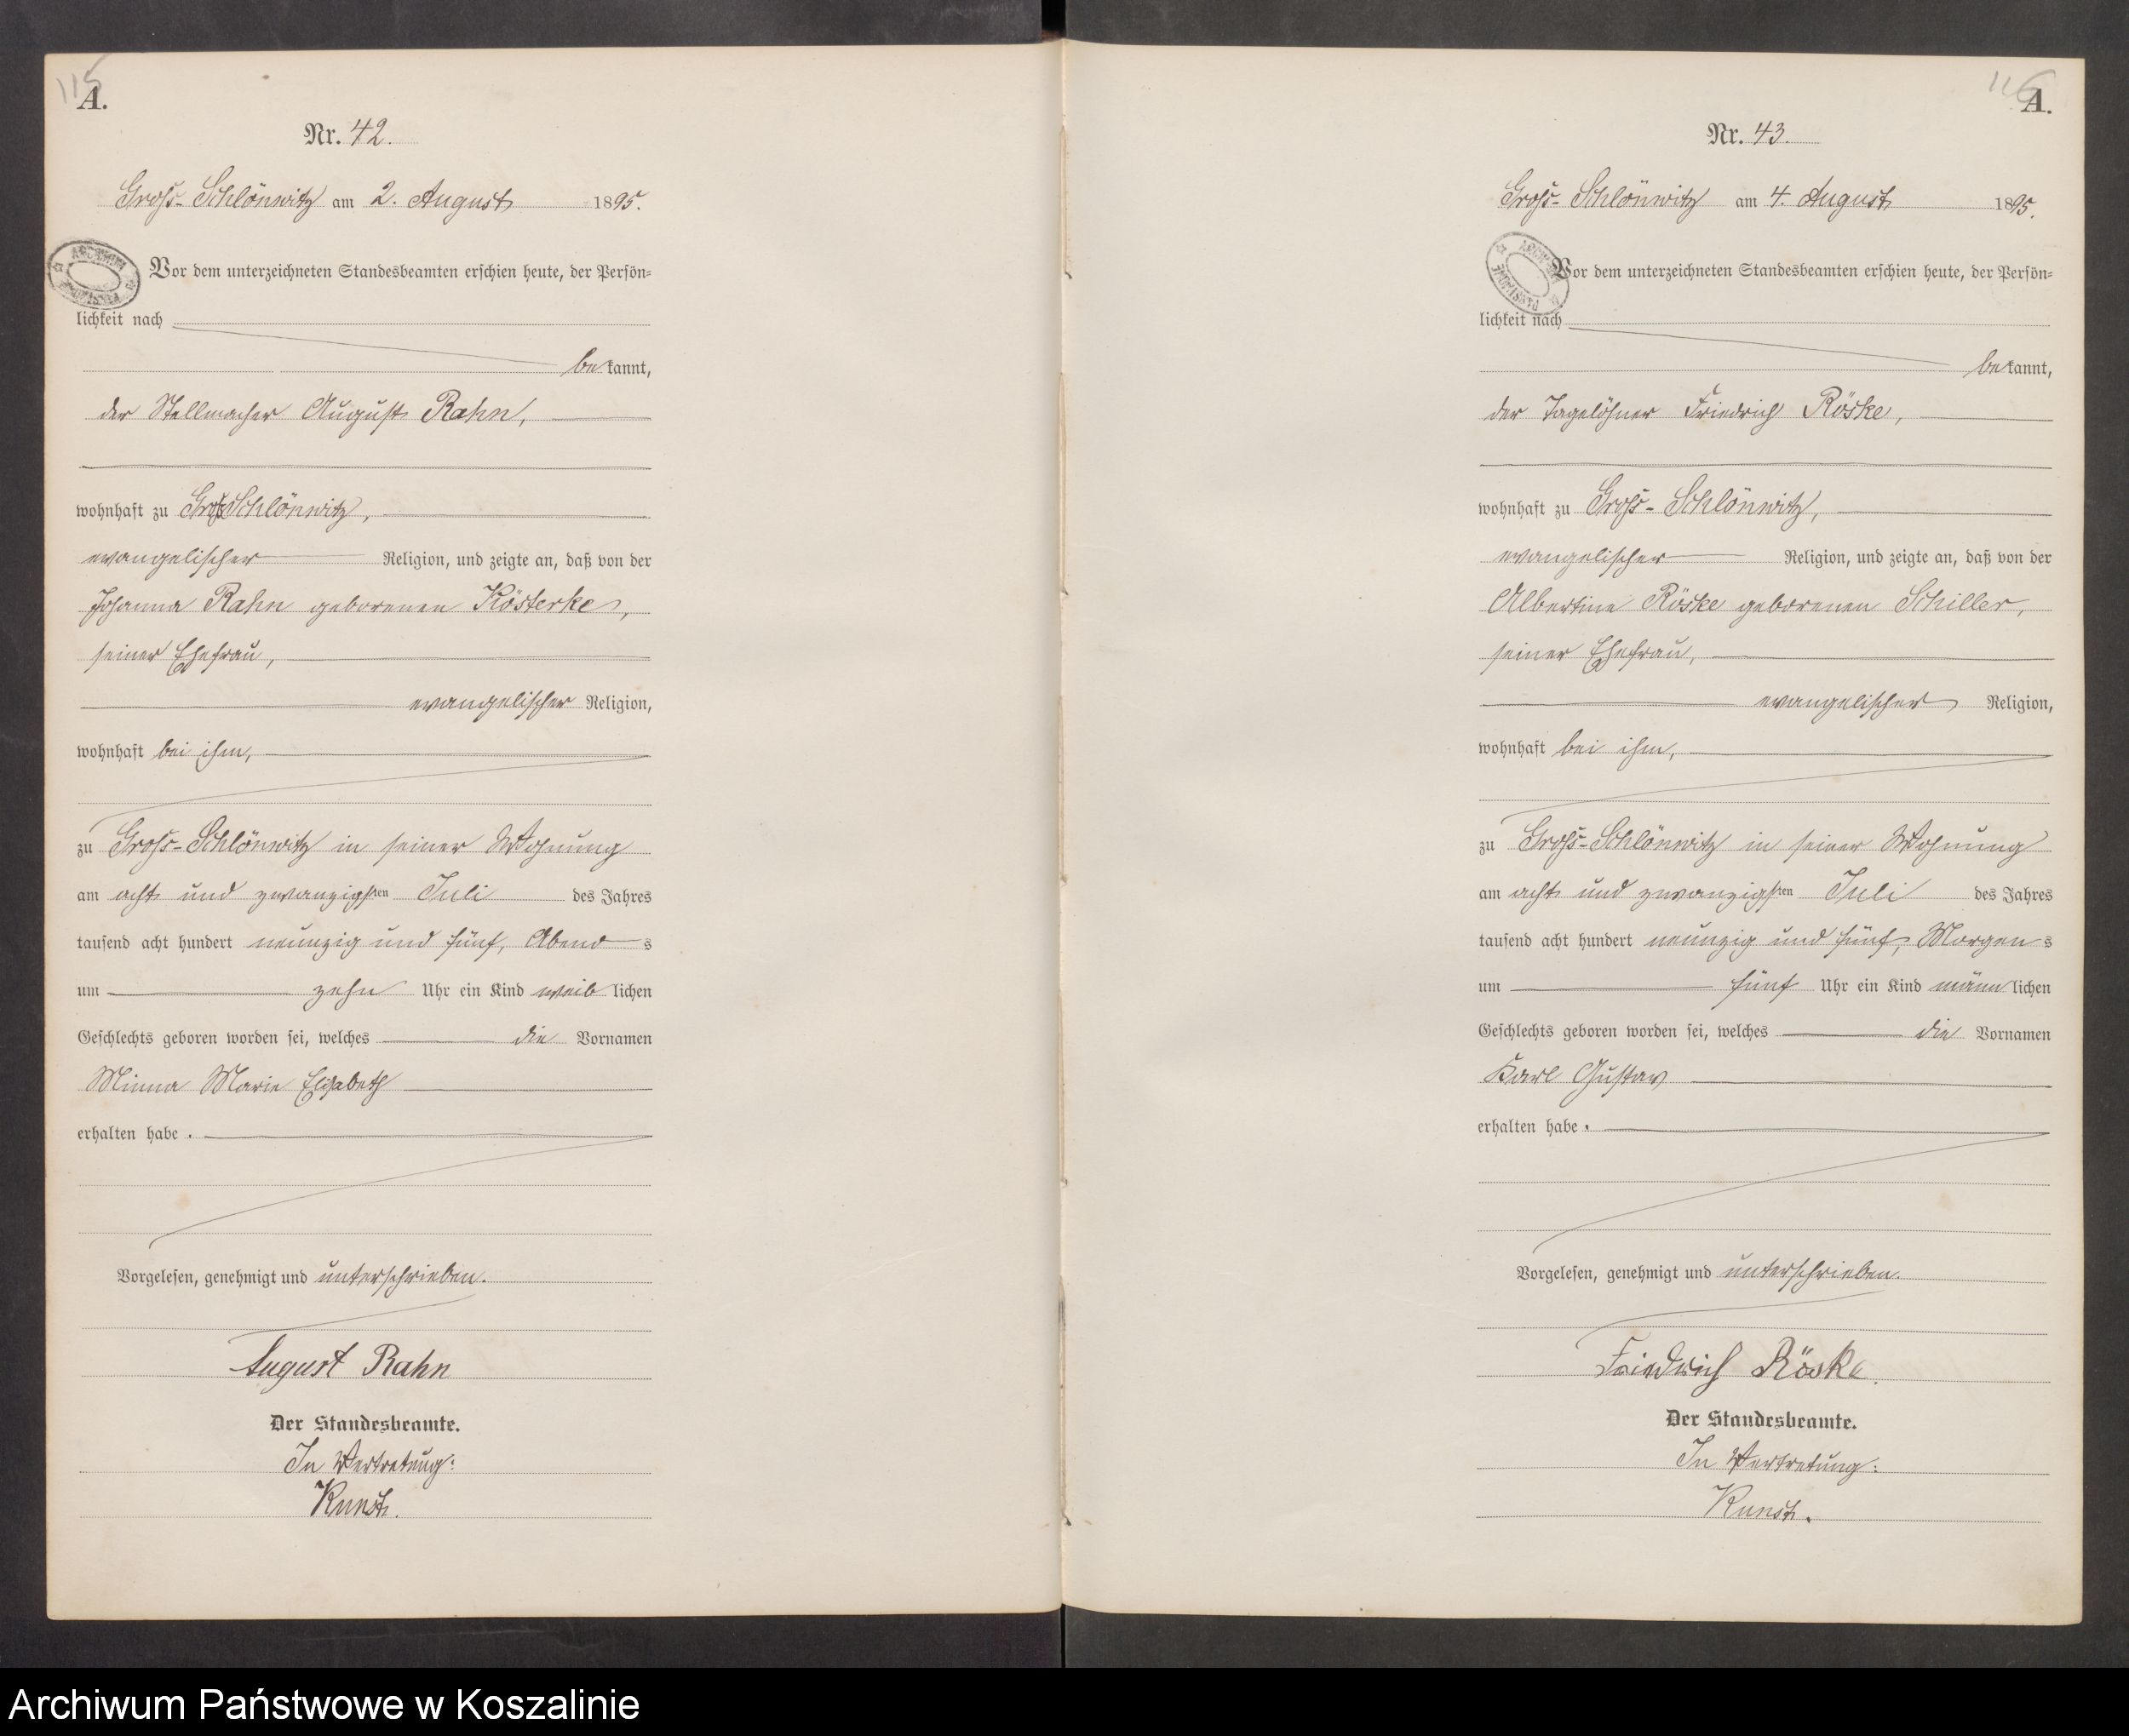 115
A.
Nr. 42.
Gross-Schlönwitz am 2. August 1895.
Vor dem unterzeichneten Standesbeamten erschien heute, der Persön=
lichkeit nach
bekannt,
der Stellmacher August Rahn,
wohnhaft zu Gross Schlönwitz,
evangelischer Religion, und zeigte an, daß von der
Johanna Rahn geborenen Kösterke,
seiner Ehefrau,
evangelischer Religion,
wohnhaft bei ihm,
zu Gross-Schlönwitz in seiner Wohnung
am acht und zwanzigsten Juli des Jahres
tausend acht hundert neunzig und fünf, Abends
um zehn Uhr ein Kind weiblichen
Geschlechts geboren worden sei, welches die Vornamen
Minna Marie Elisabeth
erhalten habe.
Vorgelesen, genehmigt und unterschrieben.
August Rahn
Der Standesbeamte.
In Vertretung:
Kunst.
116
A.
Nr. 43.
Gross-Schlönwitz am 4. August 1895.
Vor dem unterzeichneten Standesbeamten erschien heute, der Persön=
lichkeit nach
bekannt,
der Tagelöhner Friedrich Röske,
wohnhaft zu Gross-Schlönwitz,
evangelischer Religion, und zeigte an, daß von der
Albertine Röske geborenen Schiller,
seiner Ehefrau,
evangelischer Religion,
wohnhaft bei ihm,
zu Gross-Schlönwitz in seiner Wohnung
am acht und zwanzigsten Juli des Jahres
tausend acht hundert neunzig und fünf, Morgens
um fünf Uhr ein Kind männlichen
Geschlechts geboren worden sei, welches die Vornamen
Karl Gustav
erhalten habe.
Vorgelesen, genehmigt und unterschrieben.
Friedrich Röske.
Der Standesbeamte.
In Vertretung:
Kunst.
Archiwum Państwowe w Koszalinie